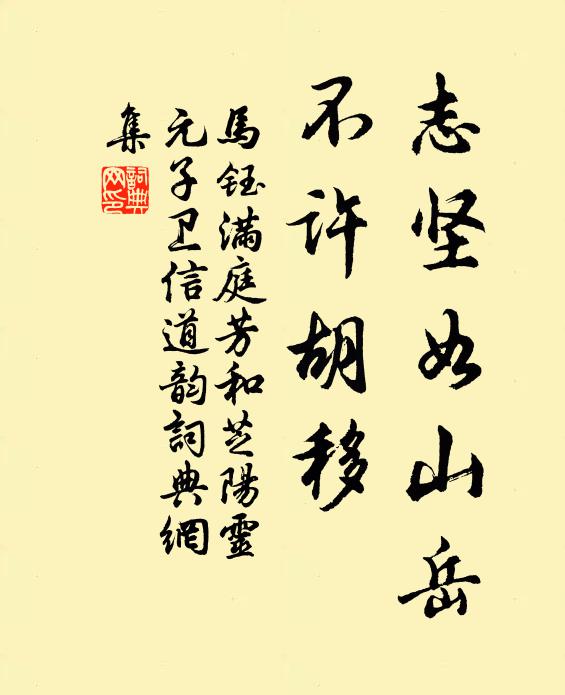 志坚如山岳
不许胡移
馬鈺满庭芳和芝陽靈
元子卫信道韵詞典網
集
詞典網印